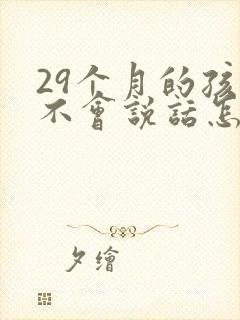 29个月的孩
不會説話怎
夕繪